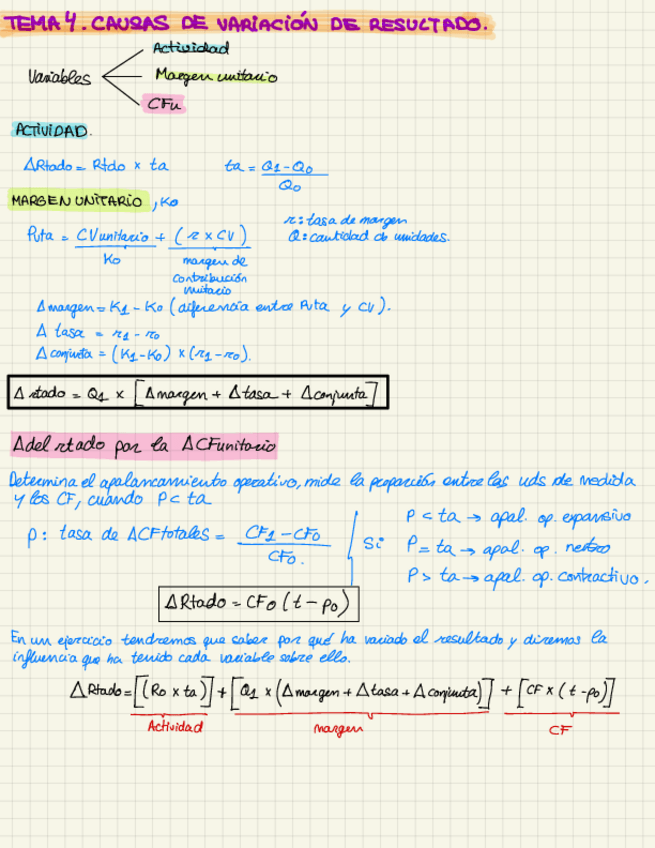 TEMA 4. CAUSAS DE VARIACIÓN DE RESULTADO.
Actividad
Variables
Margen unitario
CFu
ACTIVIDAD.
ΔRtado = Rtdo × ta
ta = Q1-Q0 / Q0
MARGEN UNITARIO, K0
r: tasa de margen
Q: cantidad de unidades.
Pvta = CVunitario + (r × CV)
K0
margen de
contribución
unitario
Δmargen = K1 - K0 (diferencia entre Pvta y CV).
Δ tasa = r1 - r0
Δ conjunta = (K1-K0) × (r1-r0).
Δ rtado = Q1 × [Δmargen + Δtasa + Δconjunta]
Δdel rtado por la ΔCFunitario
Determina el apalancamiento operativo, mide la proporción entre las uds de medida
y los CF, cuando P < ta
P: tasa de ΔCFtotales = CF1 - CF0 / CF0.
Si
P < ta → apal. op. expansivo
P = ta → apal. op. neutro
P > ta → apal. op. contractivo.
ΔRtado = CF0 (t - p0)
En un ejercicio tendremos que saber por qué ha variado el resultado y diremos la
influencia que ha tenido cada variable sobre ello.
ΔRtado = [(R0 × ta)] + [Q1 × (Δmargen + Δtasa + Δconjunta)] + [CF × (t - p0)]
Actividad
margen
CF